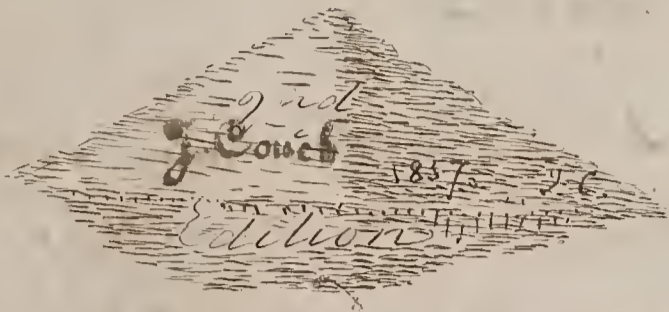 2nd
J. Couch
1857. J C.
Edition